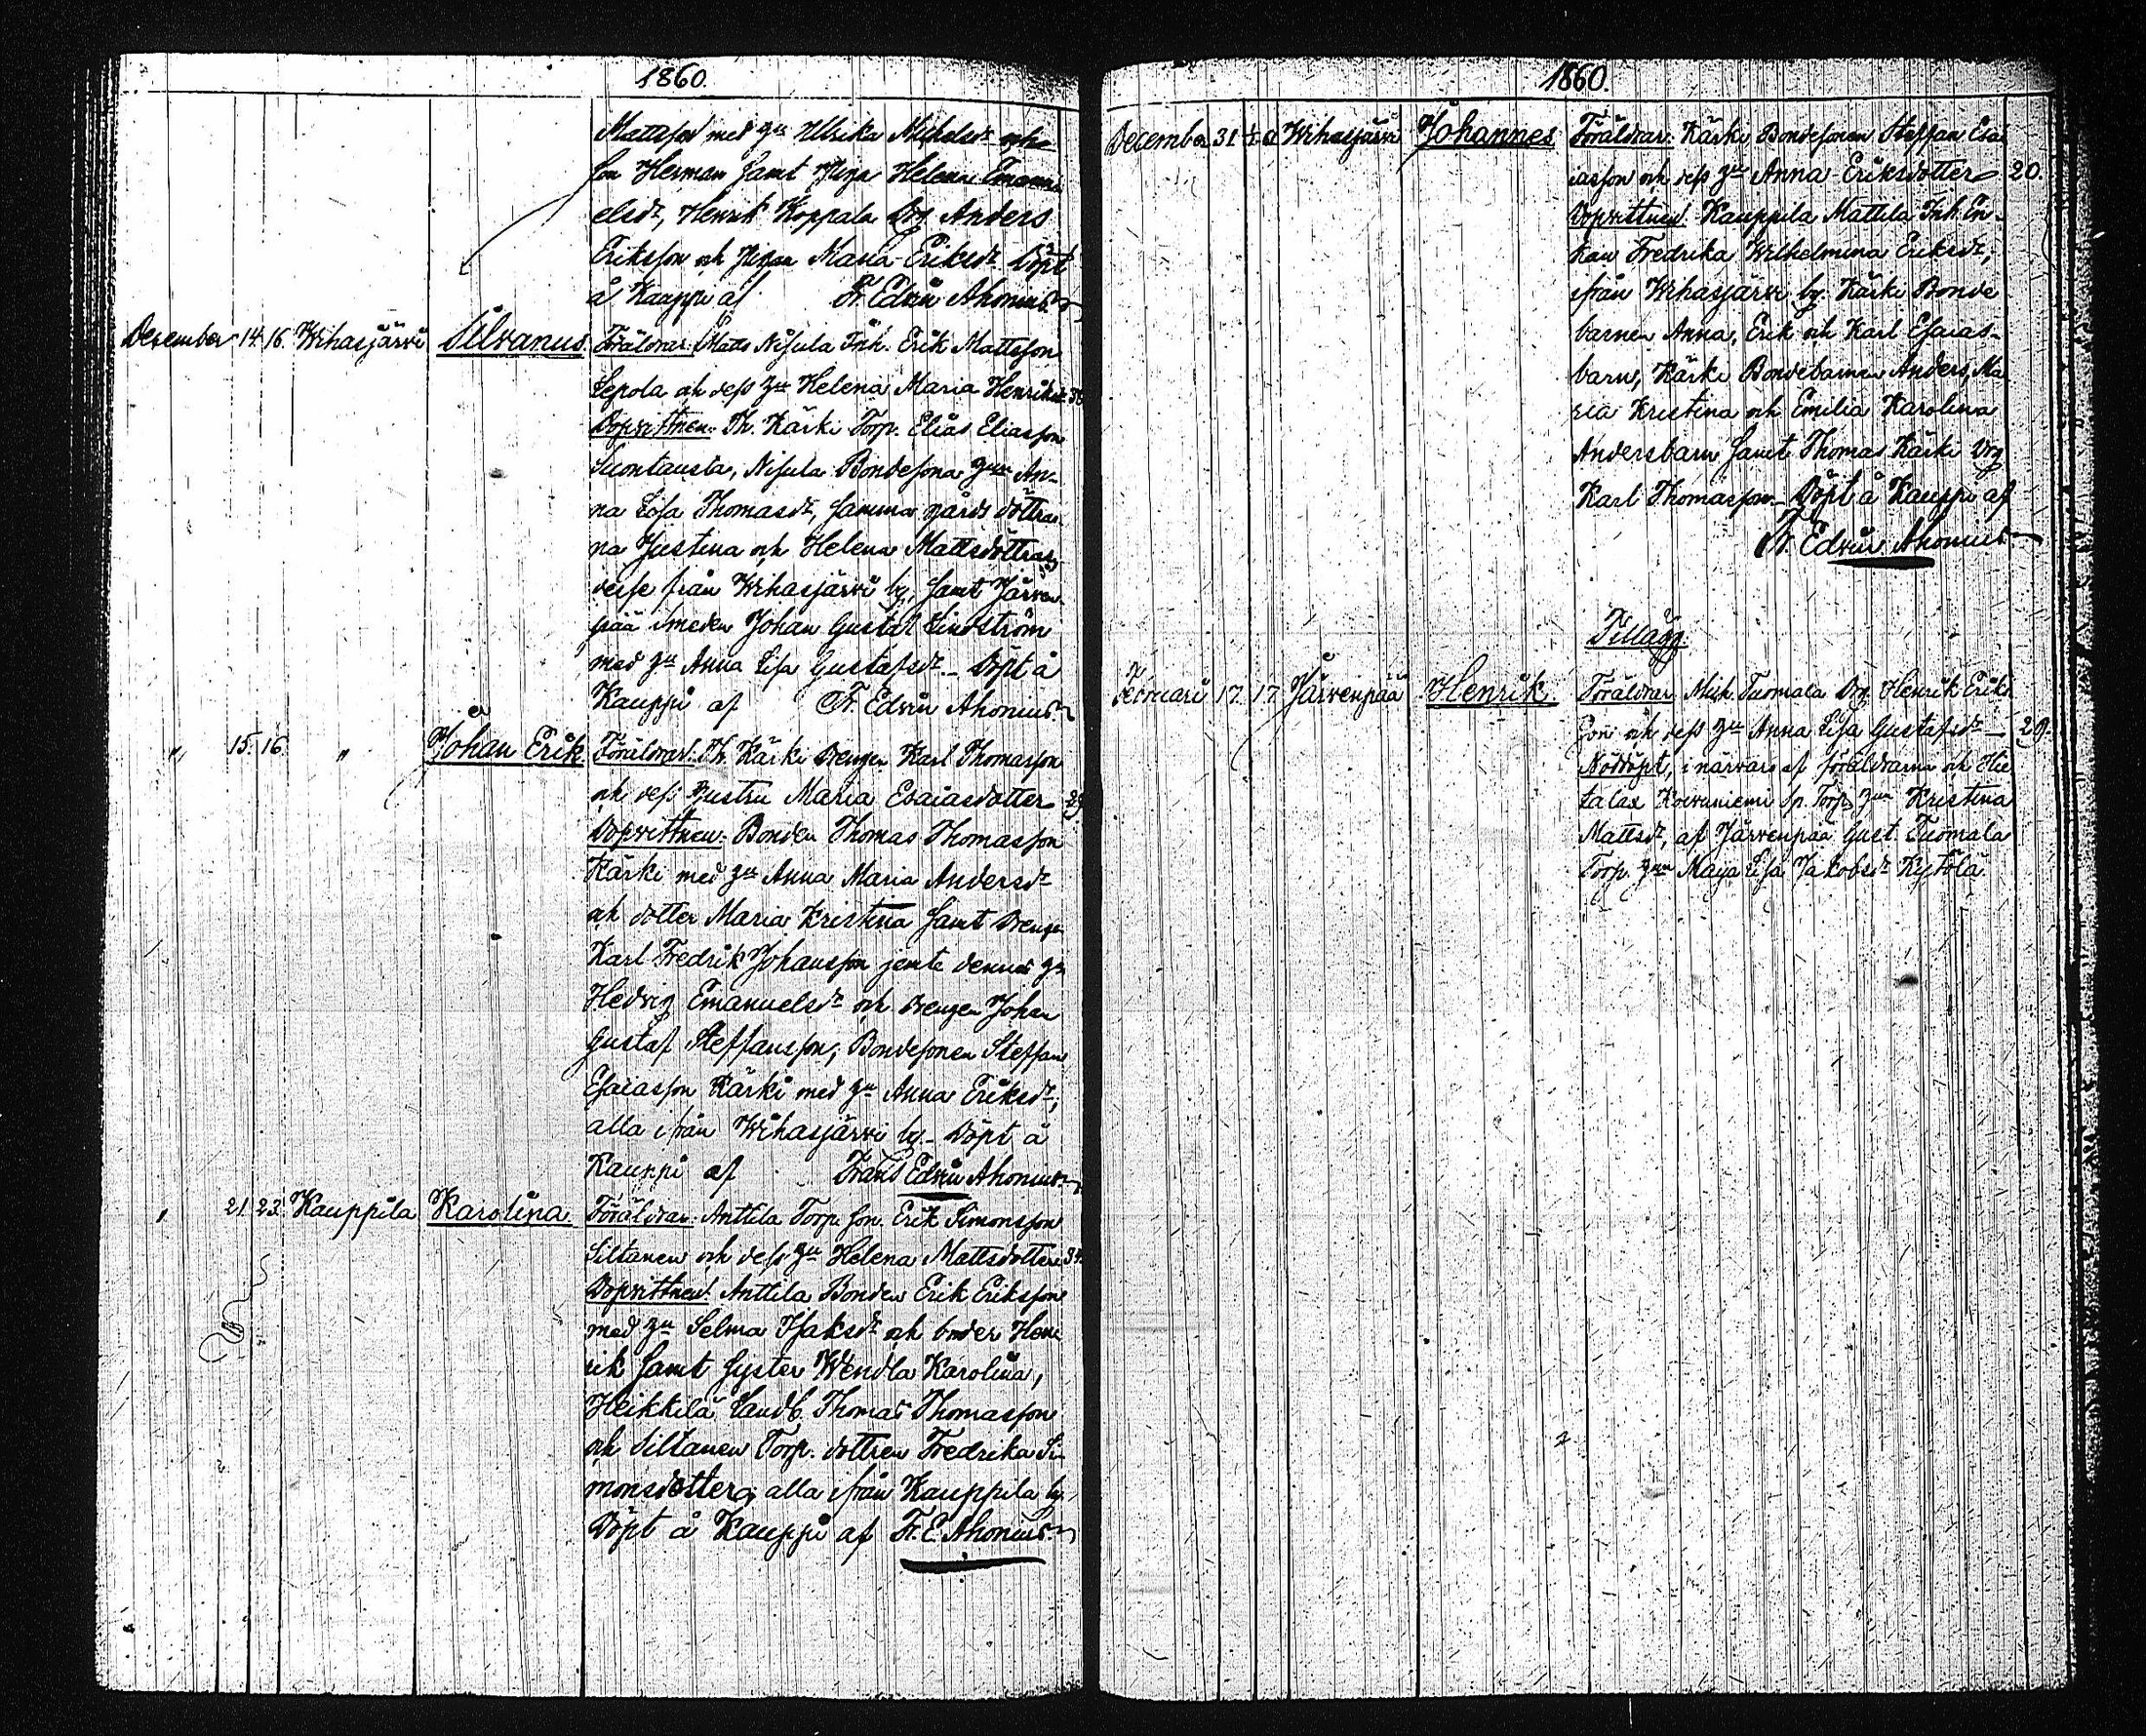 1860.
Mattsson med h:u Ulrika Michelsd:r och
son Herman samt Piga Helena Emanu
elsd:r, Henrik Koppala Drg Anders
Eriksson och Pigan Maria Eriksd:r Döpt
å Kauppi af Fr. Edvin Ahonius.
December 14. 16. Wihasjärvi Silvanus. Föräldrar: Matts Nisula Inh. Erik Mattsson
Lepola och dess h:u Helena Maria Henriksd:r
Dopvittnen: Th. Kärki Torp. Elias Eliasson
Suontausta, Nisula Bondesona h:un An-
na Lovisa Thomasd:r, samma gårds döttrar-
na Justina och Helena Mattsdöttrar,
desse från Wihasjärvi by, samt Järven-
pää smeden Johan Gustaf Lindström
med h:u Anna Lisa Gustafsd:r. Döpt å
Kauppi af Fr. Edvin Ahonius.
" 15. 16. " Johan Erik. Föräldrar: Th. Kärki Drengen Karl Thomasson
och dess hustru Maria Esaiasdotter 29
Dopvittnen: Bonden Thomas Thomasson
Kärki med h:u Anna Maria Andersd:r
och dotter Maria Kristina samt Drengen
Karl Fredrik Johansson jemte dennes h:u
Hedvig Emanuelsd:r och Drengen Johan
Gustaf Steffansson, Bondesonen Steffan
Esaiasson Kärki med h:u Anna Eriksd:r,
alla ifrån Wihasjärvi by. Döpt å
Kauppi af Frans Edvin Ahonius.
" 21. 23. Kauppila Karolina. Föräldrar: Anttila Torp. son Erik Simonsson
Siltanen och dess h:u Helena Mattsdotter 34.
Dopvittnen: Anttila Bonden Erik Eriksson
med h:u Selma Isaksd:r och broder Hen-
rik samt syster Wendla Karolina,
Heikkilä Landb. Thomas Thomasson
och Siltanen Torp. dottren Fredrika Si-
monsdotter, alla ifrån Kauppila by,
Döpt å Kauppi af Fr. E. Ahonius.
1860.
December 31 Wihasjärvi Johannes Föräldrar: Kärki Bondesonen Steffan Esa-
iasson och dess h:u Anna Eriksdotter 20.
Dopvittnen: Kauppila Mattila Inh. En-
kan Fredrika Wilhelmina Eriksd:r,
ifrån Wihasjärvi by. Kärki Bonde
barnen Anna, Erik och Karl Esaias-
barn, Kärki Bondebarnen Anders, Ma-
ria Kristina och Emilia Karolina
Andersbarn samt Thomas Kärki Drg
Karl Thomasson. Döpt å Kauppi af
Fr. Edvin Ahonius
Tillägg.
Februari 17. 17. Järvenpää Henrik. Föräldrar: Mich. Tuomala Drg. Henrik Eriks-
son och dess h:u Anna Lisa Gustafsd:r 29.
Nöddöpt, i närvaro af föräldrarna och Hie
talax Koivuniemi Sp. Torp. h:un Kristina
Mattsd:r, af Järvenpää Gust. Tuomala
Torp. h:un Maja Lisa Jakobsd:r Kytölä.